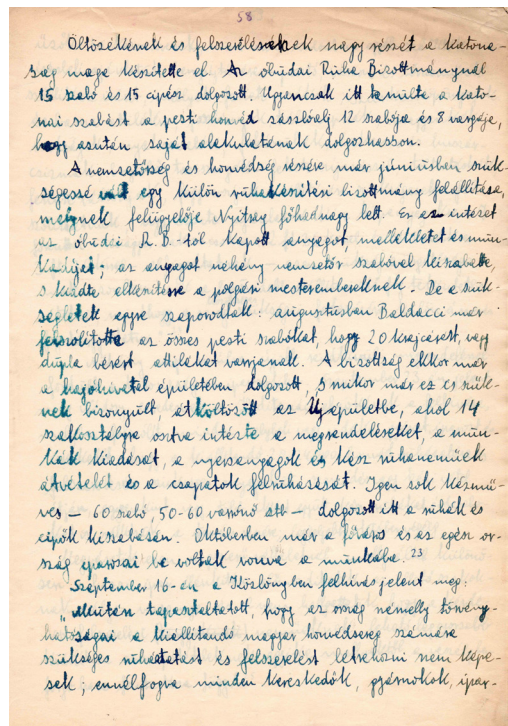 58
Öltözékének és felszerelésének nagy részét a katona-
ság maga készítette el. Az óbudai Ruha Bizottmánynál
15 szabó és 15 cipész dolgozott. Ugyancsak itt tanulta a kato-
nai szabást a pesti honvéd zászlóalj 12 szabója és 8 vargája,
hogy azután saját alakulatának dolgozhasson.
A nemzetőrség és honvédség részére már júniusban szük-
ségessé vált egy külön ruhakészítési bizottmány felállítása,
melynek felügyelője Nyitray főhadnagy lett. Ez az intézet
az óbudai R.B.-tól kapott anyagot, mellékletet és mun-
kadíjat; az anyagot néhány nemzetőr szabóval kiszabatta,
s kiadta elkészítésre a polgári mesterembereknek. De a szük-
ségletek egyre szaporodtak: augusztusban Baldacci már
felszólította az összes pesti szabókat, hogy 20 krajcárért, vagy
dupla bérért attilákat varrjanak. A bizottság ekkor már
a hajóhivatal épületében dolgozott, s mikor már ez is szűk-
nek bizonyült, átköltözött az Ujépületbe, ahol 14
szakosztályra osztva intézte a megrendeléseket, a mun-
kák kiadását, a nyersanyagok és kész ruhaneműek
átvételét és a csapatok felruházását. Igen sok kézmű-
ves – 60 szabó, 50-60 varrónő stb – dolgozott itt a ruhák és
cipők kiszabásán. Októberben már a főváros és az egész or-
szág iparosai be voltak vonva a munkába. 23
Szeptember 16-án a Közlönyben felhívás jelent meg:
"Miután tapasztaltatott, hogy az ország némelly törvény-
hatóságai a kiállítandó magyar honvédsereg számára
szükséges ruházatot és felszerelést létrehozni nem képe-
sek; ennélfogva minden kereskedők, gyárnokok, ipar-